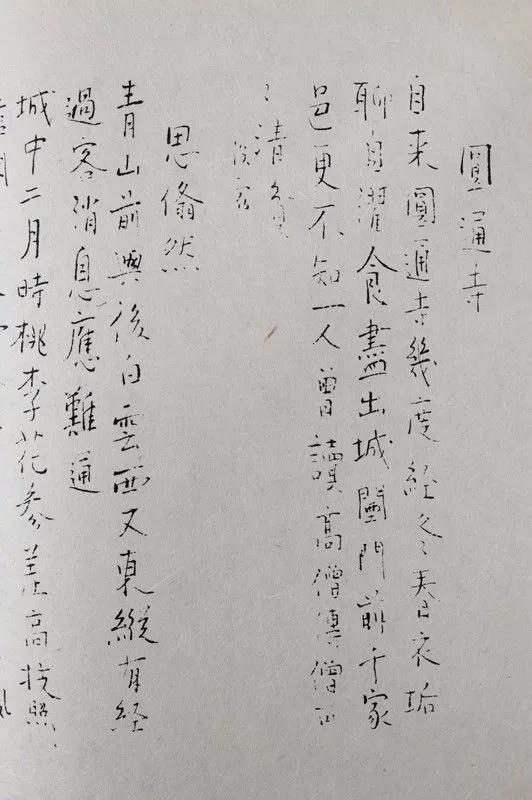 圓通寺
自来圓通寺幾度経冬春衣垢
聊自濯食盡出城闉門前千家
邑更不知一人曽讀高僧傳僧可
〻清貧
思翛然
青山前與後白雲西又東縱有経
過客消息應難通
城中二月時桃李花參差高枝照